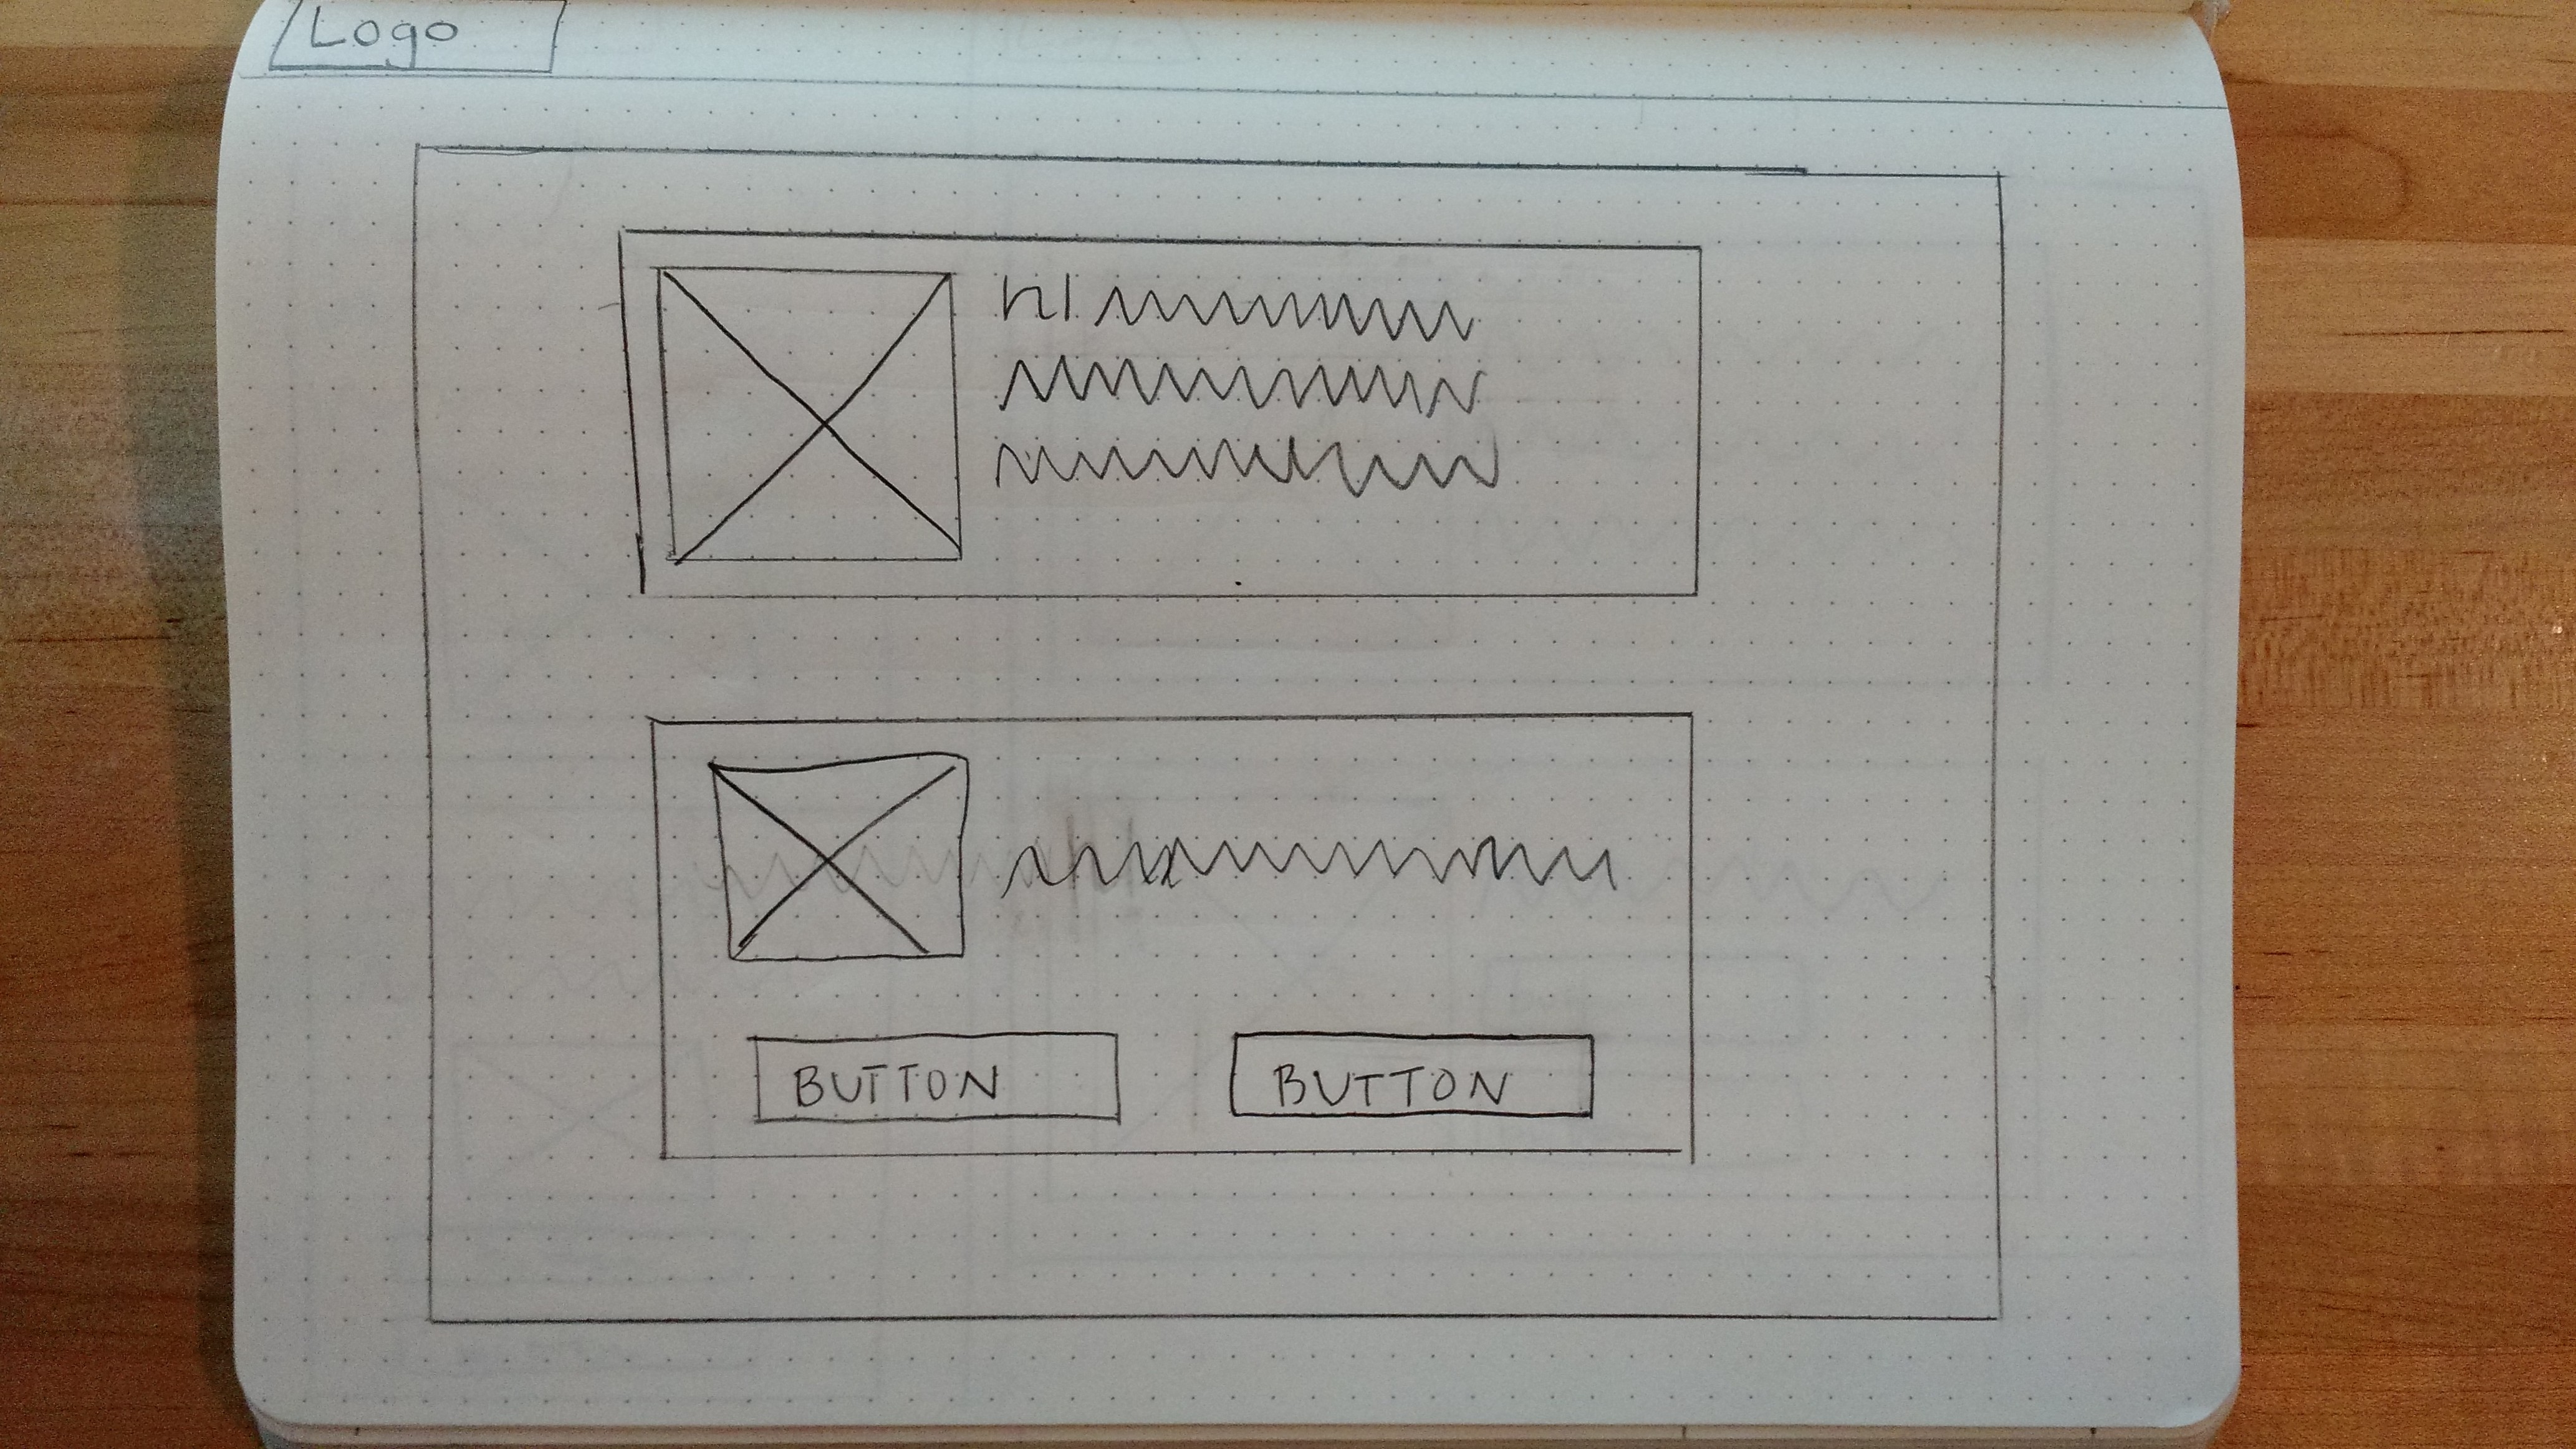 Logo
h1
BUTTON
BUTTON